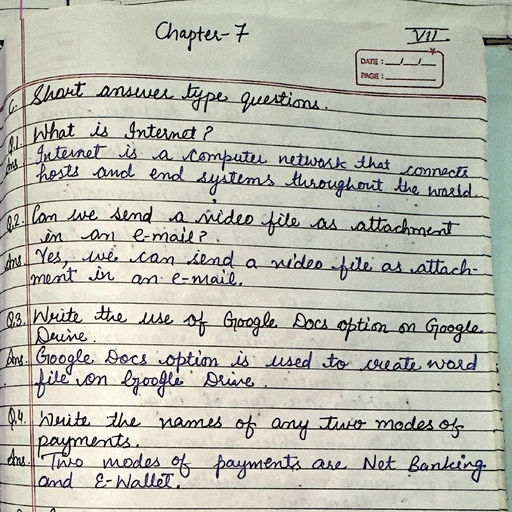 Chapter-7
VII
DATE : __/__/__
PAGE :
C. Short answer type questions.
Q.1. What is Internet?
Ans Internet is a computer network that connects
hosts and end systems throughout the world
Q.2. Can we send a video file as attachment
in an e-mail?
Ans. Yes, we can send a video file as attach-
ment in an e-mail.
Q.3. Write the use of Google Docs option on Google
Drive.
Ans. Google Docs option is used to create word
file on Google Drive.
Q.4. Write the names of any two modes of
payments.
Ans. Two modes of payments are Net Banking
and E-Wallet.